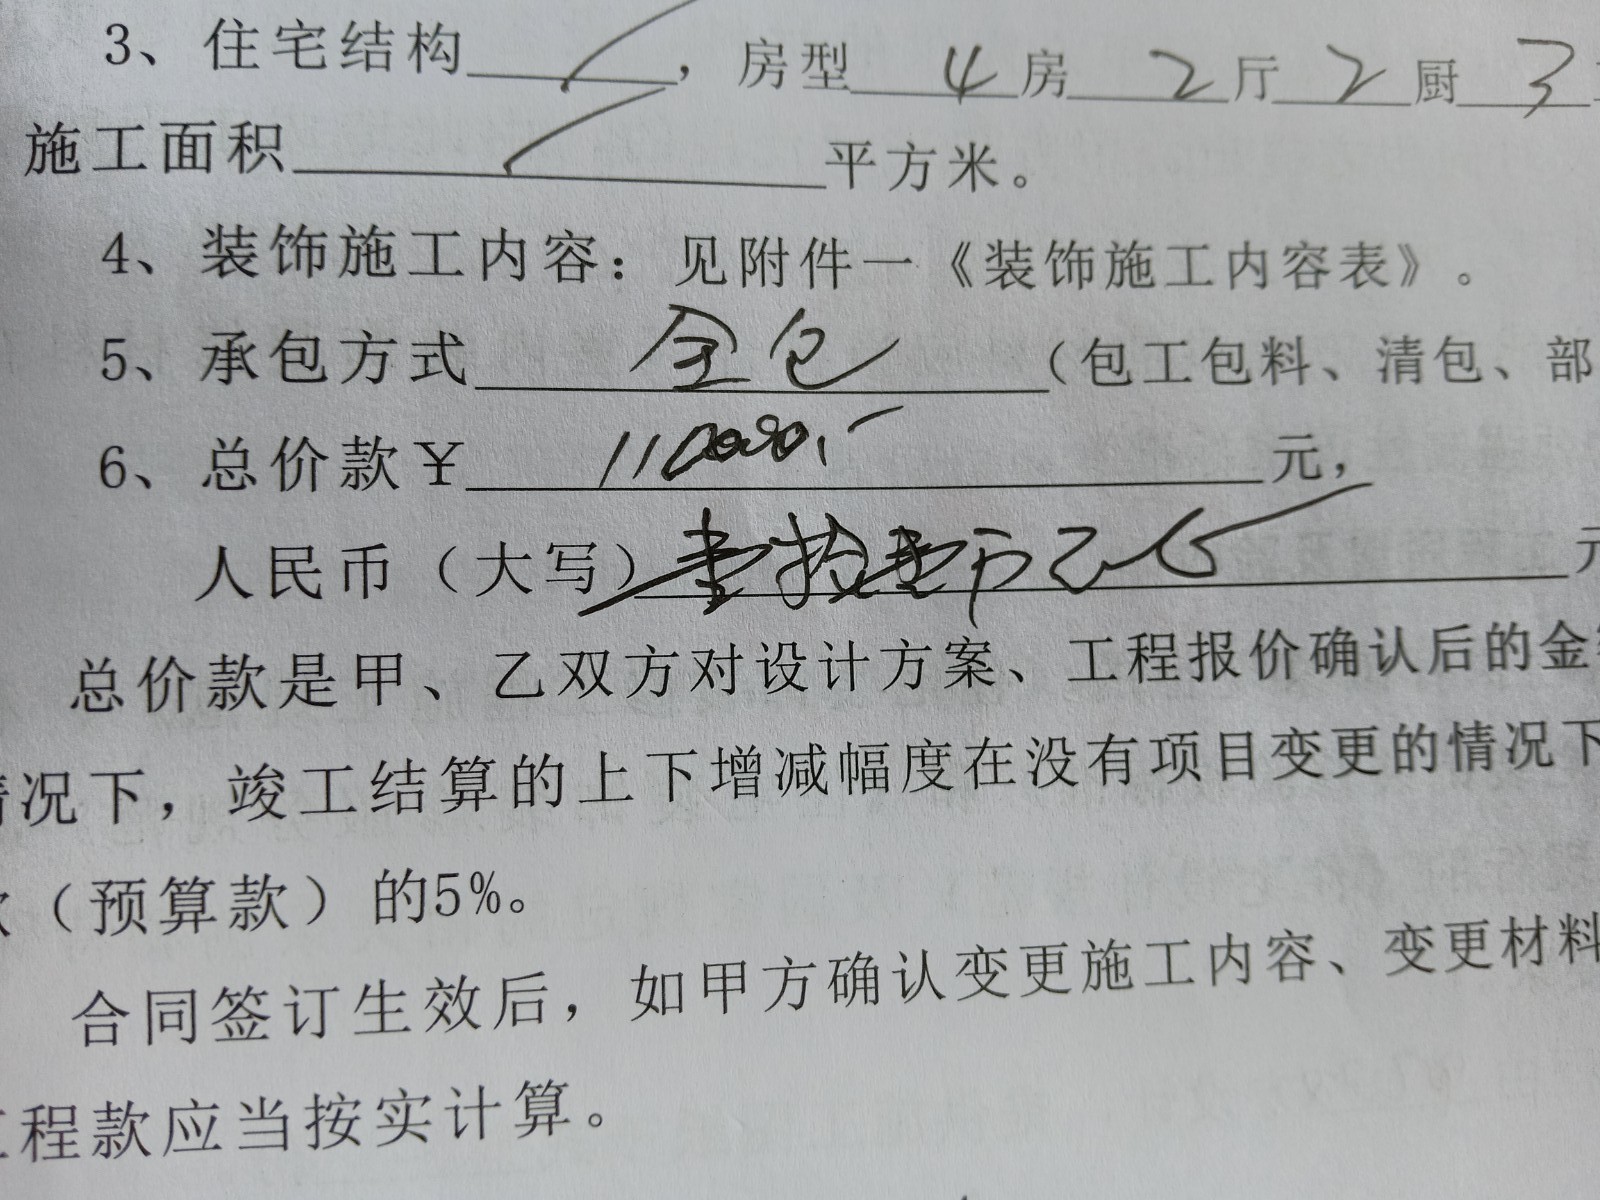 3、住宅结构 ，房型 4 房 2 厅 2 厨 3
施工面积 平方米。
4、装饰施工内容：见附件一《装饰施工内容表》。
5、承包方式 全包 （包工包料、清包、部
6、总价款￥ 110000.- 元，
人民币（大写） 壹拾壹万 元
总价款是甲、乙双方对设计方案、工程报价确认后的金
情况下，竣工结算的上下增减幅度在没有项目变更的情况下
款（预算款）的5%。
合同签订生效后，如甲方确认变更施工内容、变更材料
工程款应当按实计算。